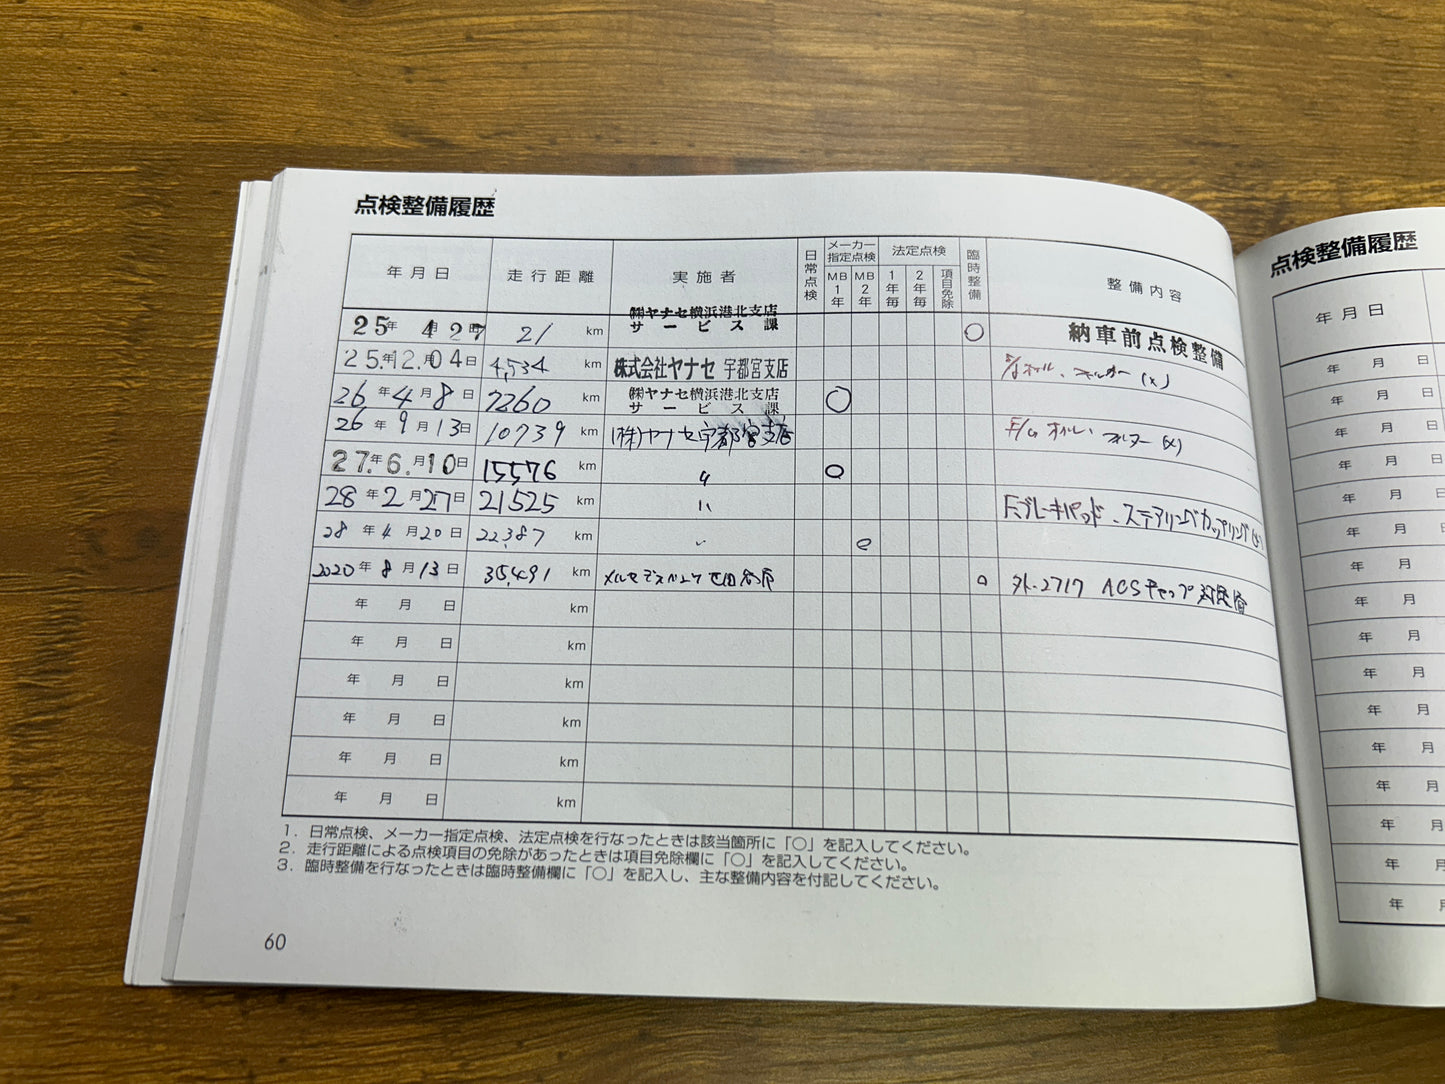 点検整備履歴
年月日 走行距離 実施者 日常点検 メーカー指定点検 MB1年 MB2年 法定点検 1年毎 2年毎 項目免除 臨時整備 整備内容
25年4月27日 21km ㈱ヤナセ横浜港北支店
サービス課 ○ 納車前点検整備
25年12月04日 4,534km 株式会社ヤナセ 宇都宮支店
26年4月8日 7260km ㈱ヤナセ横浜港北支店
サービス課 ○
26年9月13日 10739km (株)ヤナセ宇都宮支店
27年6月10日 15,576km 〃 ○
28年2月27日 21525km 〃 F.ブレーキパッド、ステアリングカップリング
28年4月20日 22,387km 〃 ○
2020年8月13日 35,491km メルセデスベンツ世田谷店 ○ 外-2717 ACSキャップ対策
年 月 日 km
年 月 日 km
年 月 日 km
年 月 日 km
年 月 日 km
年 月 日 km
1. 日常点検、メーカー指定点検、法定点検を行なったときは該当箇所に「○」を記入してください。
2. 走行距離による点検項目の免除があったときは項目免除欄に「○」を記入してください。
3. 臨時整備を行なったときは臨時整備欄に「○」を記入し、主な整備内容を付記してください。
60
点検整備履歴
年月日
年 月 日
年 月 日
年 月 日
年 月 日
年 月 日
年 月
年 月
年 月
年 月
年 月
年 月
年 月
年 月
年 月
年 月